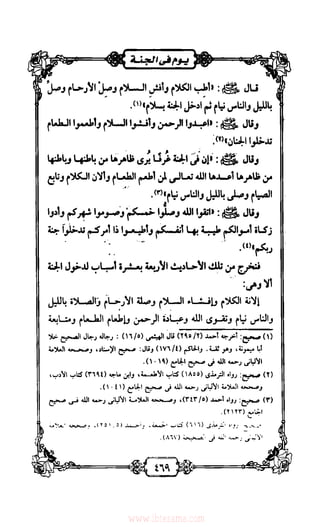 يوم فى الجنة
قال ﷺ: «أطب الكلام وأفش السلام وصل الأرحام وصل
بالليل والناس نيام ثم ادخل الجنة بسلام»(١).
وقال ﷺ: «اعبدوا الرحمن وأفشوا السلام وأطعموا الطعام
تدخلوا الجنان»(٢).
وقال ﷺ: «إن فى الجنة غرفًا يُرى ظاهرها من باطنها وباطنها
من ظاهرها أعدها الله تعالى لمن أطعم الطعام وألان الكلام وتابع
الصيام وصلى بالليل والناس نيام»(٣).
وقال ﷺ: «اتقوا الله وصلُّوا خمسكم وصوموا شهركم وأدوا
زكاة أموالكم طيبة بها أنفسكم وأطيعوا ذا أمركم تدخلوا جنة
ربكم»(٤).
فنخرج من تلك الأحاديث الأربعة بعشرة أسباب لدخول الجنة
ألا وهى:
إلانة الكلام وإفشاء السلام وصلة الأرحام والصلاة بالليل
والناس نيام وتقوى الله وعبادة الرحمن وإطعام الطعام ومتابعة
(١) صحيح: أخرجه أحمد (٢٩٥/٢) قال الهيثمى (١٦/٥): رجاله رجال الصحيح خلا
أبا ميمونة، وهو ثقة. والحاكم (١٧٦/٤) وقال: صحيح الإسناد، وصححه العلامة
الألبانى رحمه الله فى صحيح الجامع (١٠١٩).
(٢) صحيح: رواه الترمذى (١٨٥٥) كتاب الأطعمة، وابن ماجه (٣٦٩٤) كتاب الأدب،
وصححه العلامة الألبانى رحمه الله فى صحيح الجامع (١٠٤١).
(٣) صحيح: رواه أحمد (٣٤٣/٥)، وصححه العلامة الألبانى رحمه الله فى صحيح
الجامع (٢١٢٣).
صحيح: رواه الترمذى (٦١٦) كتاب الجمعة، وأحمد (٢٥١/٥)، وصححه العلامة
الألبانى رحمه الله فى الصحيحة (٨٦٧).
٤٦٩
www.ibtesama.com